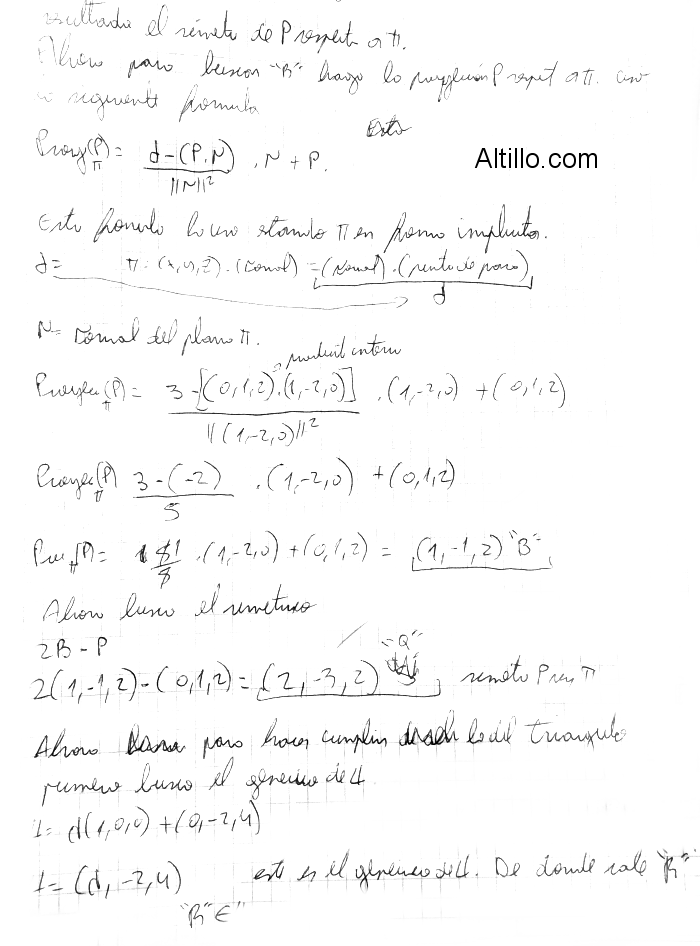 resultado el simetrico de P respecto a π.
Ahora para buscar "B" hago la proyeccion P respect a π. con
la siguiente formula
Esto
Proy(P) = d-(P.N) . N + P.
π ||N||²
Altillo.com
Esta formula la uso estando π en forma implicita.
d= π: (x,y,z).(normal) = (normal).(punto de paso)
d
N= normal del plano π.
producto interno
Proyec(P) = 3-[(0,1,2).(1,-2,0)] .(1,-2,0) +(0,1,2)
π ||(1,-2,0)||²
Proyec(P) 3-(-2) .(1,-2,0) +(0,1,2)
π 5
Proy(P)= .(1,-2,0)+(0,1,2) = (1,-1,2) "B"
π
Ahora busco el simetrico
2B - P
"Q"
2(1,-1,2)-(0,1,2)=(2,-3,2) simetrico P res π
Ahora para hacer cumplir lo del triangulo
primero busco el generico de L
L= d(1,0,0)+(0,-2,4)
L= (d,-2,4) este es el generico de L. De donde sale "R"
"R" ∈